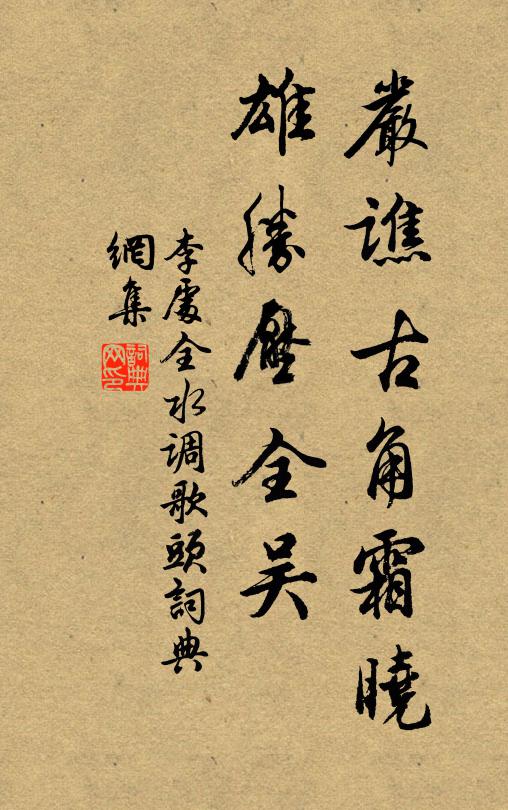 嚴譙古角霜曉
雄勝壓全吴
李處全水调歌頭詞典
網集
詞典
网印